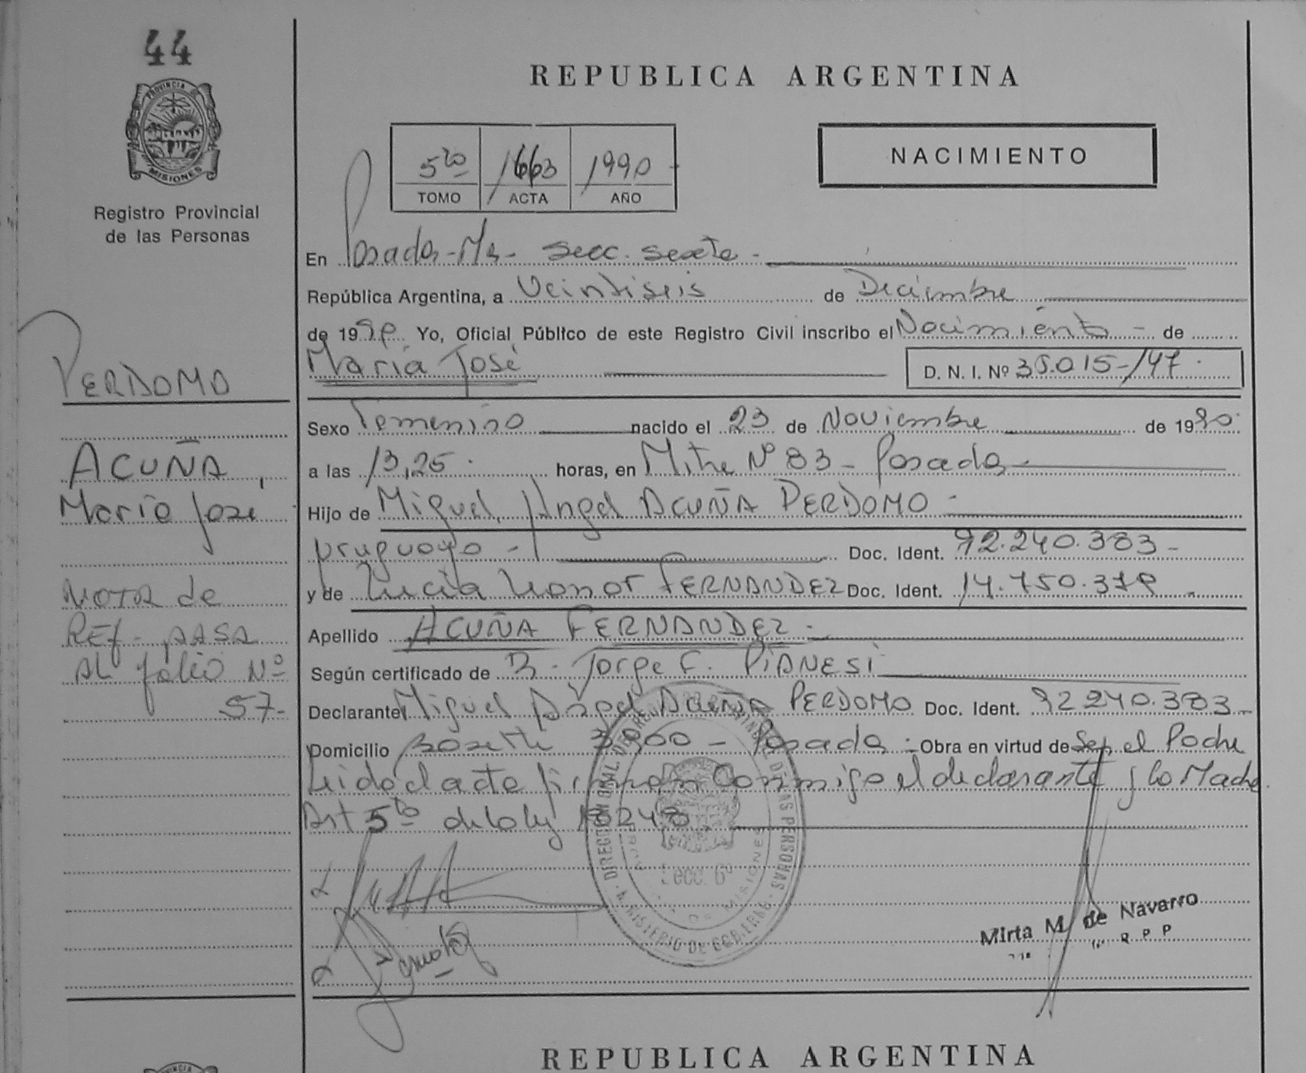 44
REPUBLICA ARGENTINA
PROVINCIA DE
MISIONES
Registro Provincial
de las Personas
5to 1663 1990
TOMO ACTA AÑO
NACIMIENTO
En Posadas-Ms- secc. sexta -
República Argentina, a Veintiseis de Diciembre
de 1990 Yo, Oficial Público de este Registro Civil inscribo el Nacimiento - de
María José D. N. I. Nº 35.015-147-
PERDOMO
Sexo Femenino nacido el 23 de Noviembre de 1990
ACUÑA,
a las 13,25 horas, en Mitre Nº 83 - Posadas -
María José
Hijo de Miguel Angel ACUÑA PERDOMO -
uruguayo - Doc. Ident. 92.240.383-
NOTA de
y de Lucía Leonor FERNANDEZ Doc. Ident. 14.150.378
REF- PASA
Apellido ACUÑA FERNANDEZ -
AL folio Nº
Según certificado de Dr. Jorge C. PIANESI
57-
Declarante Miguel Angel ACUÑA PERDOMO Doc. Ident. 92240.383-
Domicilio Rosetti - Posadas - Obra en virtud de Ser el Padre
Leida el acta firman conmigo el declarante y la Madre
Art 5to de la ley 18248
Secc. 6º
MINISTERIO DE GOBIERNO
Mirta M. de Navarro
R P P
REPUBLICA ARGENTINA